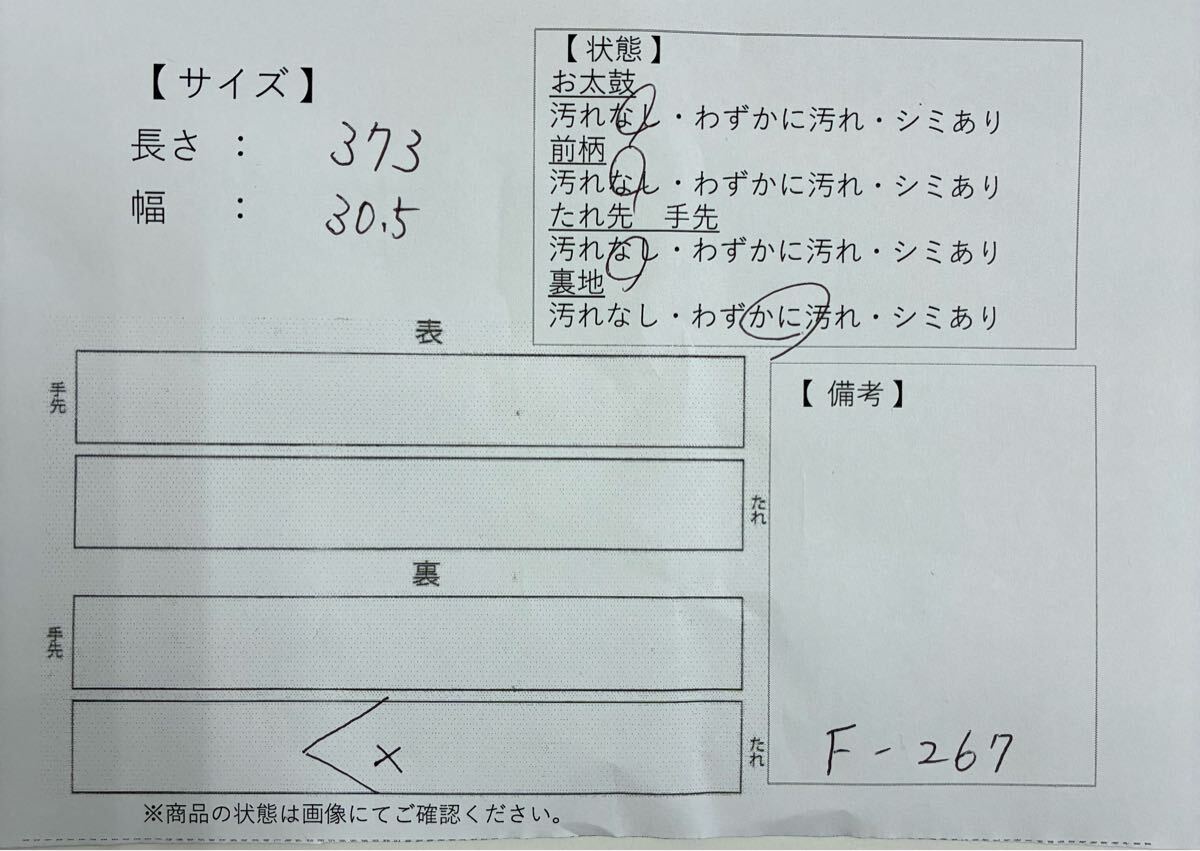 【 サイズ 】
長さ ： 373
幅 ： 30.5
【 状態 】
お太鼓
汚れなし・わずかに汚れ・シミあり
前柄
汚れなし・わずかに汚れ・シミあり
たれ先 手先
汚れなし・わずかに汚れ・シミあり
裏地
汚れなし・わずかに汚れ・シミあり
表
手先
たれ
裏
手先
×
たれ
【 備考 】
F - 267
※商品の状態は画像にてご確認ください。